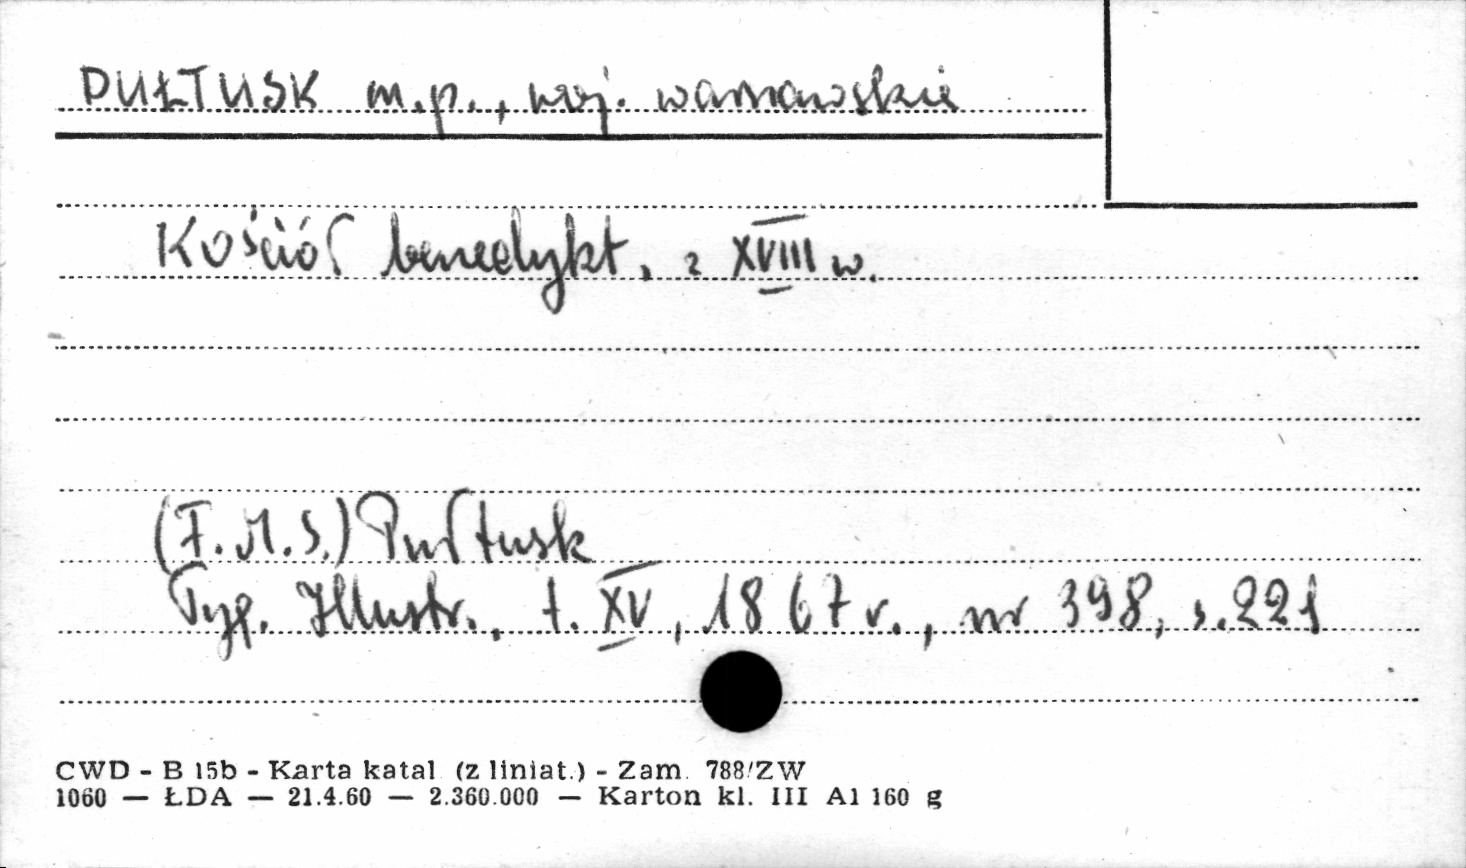 PUŁTUSK m.p., woj. warszawskie
Kościół benedykt. z XVIII w.
(F.M.S.) Pułtusk
Tyg. Illustr., t. XV, 1867 r., nr 398, s. 221
CWD - B 15b - Karta katal (z liniat.) - Zam. 788/ZW
1060 — ŁDA — 21.4.60 — 2.360.000 — Karton kl. III A1 160 g